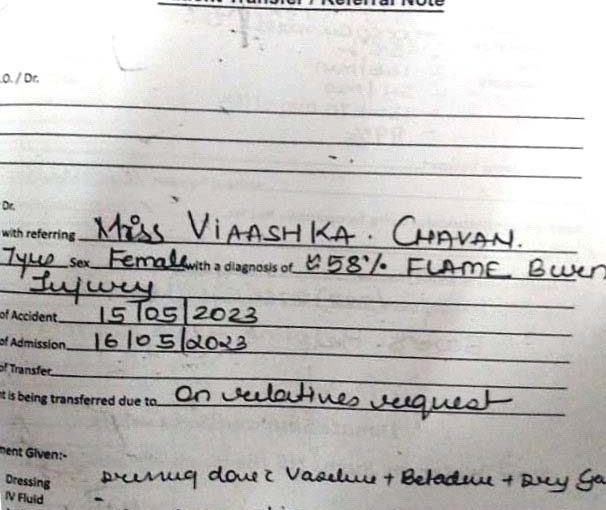 Patient Transfer / Referral Note
.O. / Dr.
Dr.
with referring Miss VIAASHKA. CHAVAN.
7yrs Sex Female with a diagnosis of 58% FLAME Burn
Injury
of Accident 15/05/2023
of Admission 16/05/2023
of Transfer
t is being transferred due to On relatives request
ment Given:-
Dressing Dressing done c Vaseline + Betadine + Dry Ga
IV Fluid -